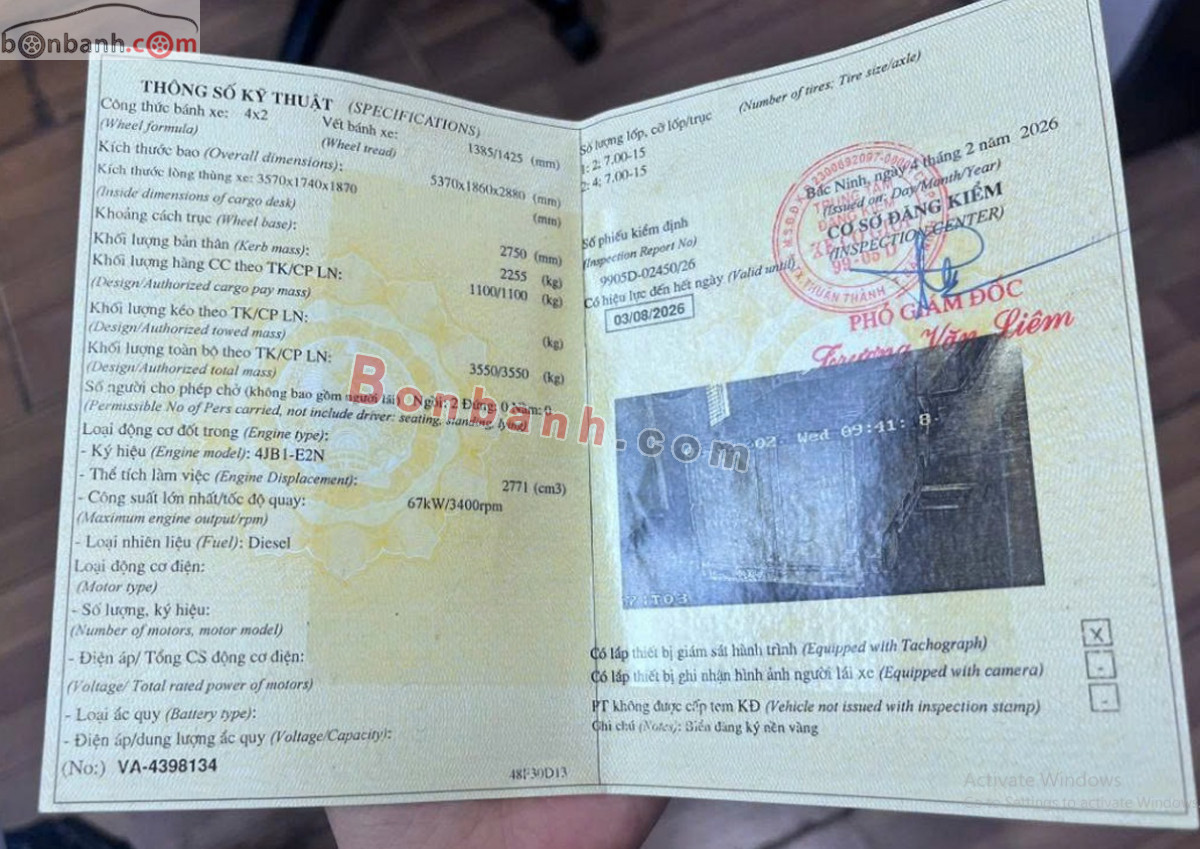 bonbanh.com
THÔNG SỐ KỸ THUẬT (SPECIFICATIONS)
Công thức bánh xe: 4x2
(Wheel formula)
Vết bánh xe: 1385/1425 (mm)
(Wheel tread)
Kích thước bao (Overall dimensions): 5370x1860x2880 (mm)
Kích thước lòng thùng xe: 3570x1740x1870 (mm)
(Inside dimensions of cargo desk)
Khoảng cách trục (Wheel base): 2750 (mm)
Khối lượng bản thân (Kerb mass): 2255 (kg)
Khối lượng hàng CC theo TK/CP LN: 1100/1100 (kg)
(Design/Authorized cargo pay mass)
Khối lượng kéo theo TK/CP LN: (kg)
(Design/Authorized towed mass)
Khối lượng toàn bộ theo TK/CP LN: 3550/3550 (kg)
(Design/Authorized total mass)
Số người cho phép chở (không bao gồm người lái): Ngồi: 2 Đứng: 0 Nằm: 0
(Permissible No of Pers carried, not include driver: seating, standing, lying)
Loại động cơ đốt trong (Engine type):
- Ký hiệu (Engine model): 4JB1-E2N
- Thể tích làm việc (Engine Displacement): 2771 (cm3)
- Công suất lớn nhất/tốc độ quay: 67kW/3400rpm
(Maximum engine output/rpm)
- Loại nhiên liệu (Fuel): Diesel
Loại động cơ điện:
(Motor type)
- Số lượng, ký hiệu:
(Number of motors, motor model)
- Điện áp/ Tổng CS động cơ điện:
(Voltage/ Total rated power of motors)
- Loại ắc quy (Battery type):
- Điện áp/dung lượng ắc quy (Voltage/Capacity):
(No:) VA-4398134
48F30D13
Số lượng lốp, cỡ lốp/trục (Number of tires; Tire size/axle)
1: 2; 7.00-15
2: 4; 7.00-15
Bắc Ninh, ngày 4 tháng 2 năm 2026
(Issued on: Day/Month/Year)
CƠ SỞ ĐĂNG KIỂM
(INSPECTION CENTER)
TRUNG TÂM
ĐĂNG KIỂM
XE CƠ GIỚI
99-05D
Số phiếu kiểm định
(Inspection Report No)
9905D-02450/26
Có hiệu lực đến hết ngày (Valid until)
03/08/2026
PHÓ GIÁM ĐỐC
Trương Văn Liêm
Bonbanh.com
02 Wed 09:41: 8
Có lắp thiết bị giám sát hành trình (Equipped with Tachograph) X
Có lắp thiết bị ghi nhận hình ảnh người lái xe (Equipped with camera) -
PT không được cấp tem KĐ (Vehicle not issued with inspection stamp) -
Ghi chú (Notes): Biển đăng ký nền vàng
Activate Windows
Go to Settings to activate Windows